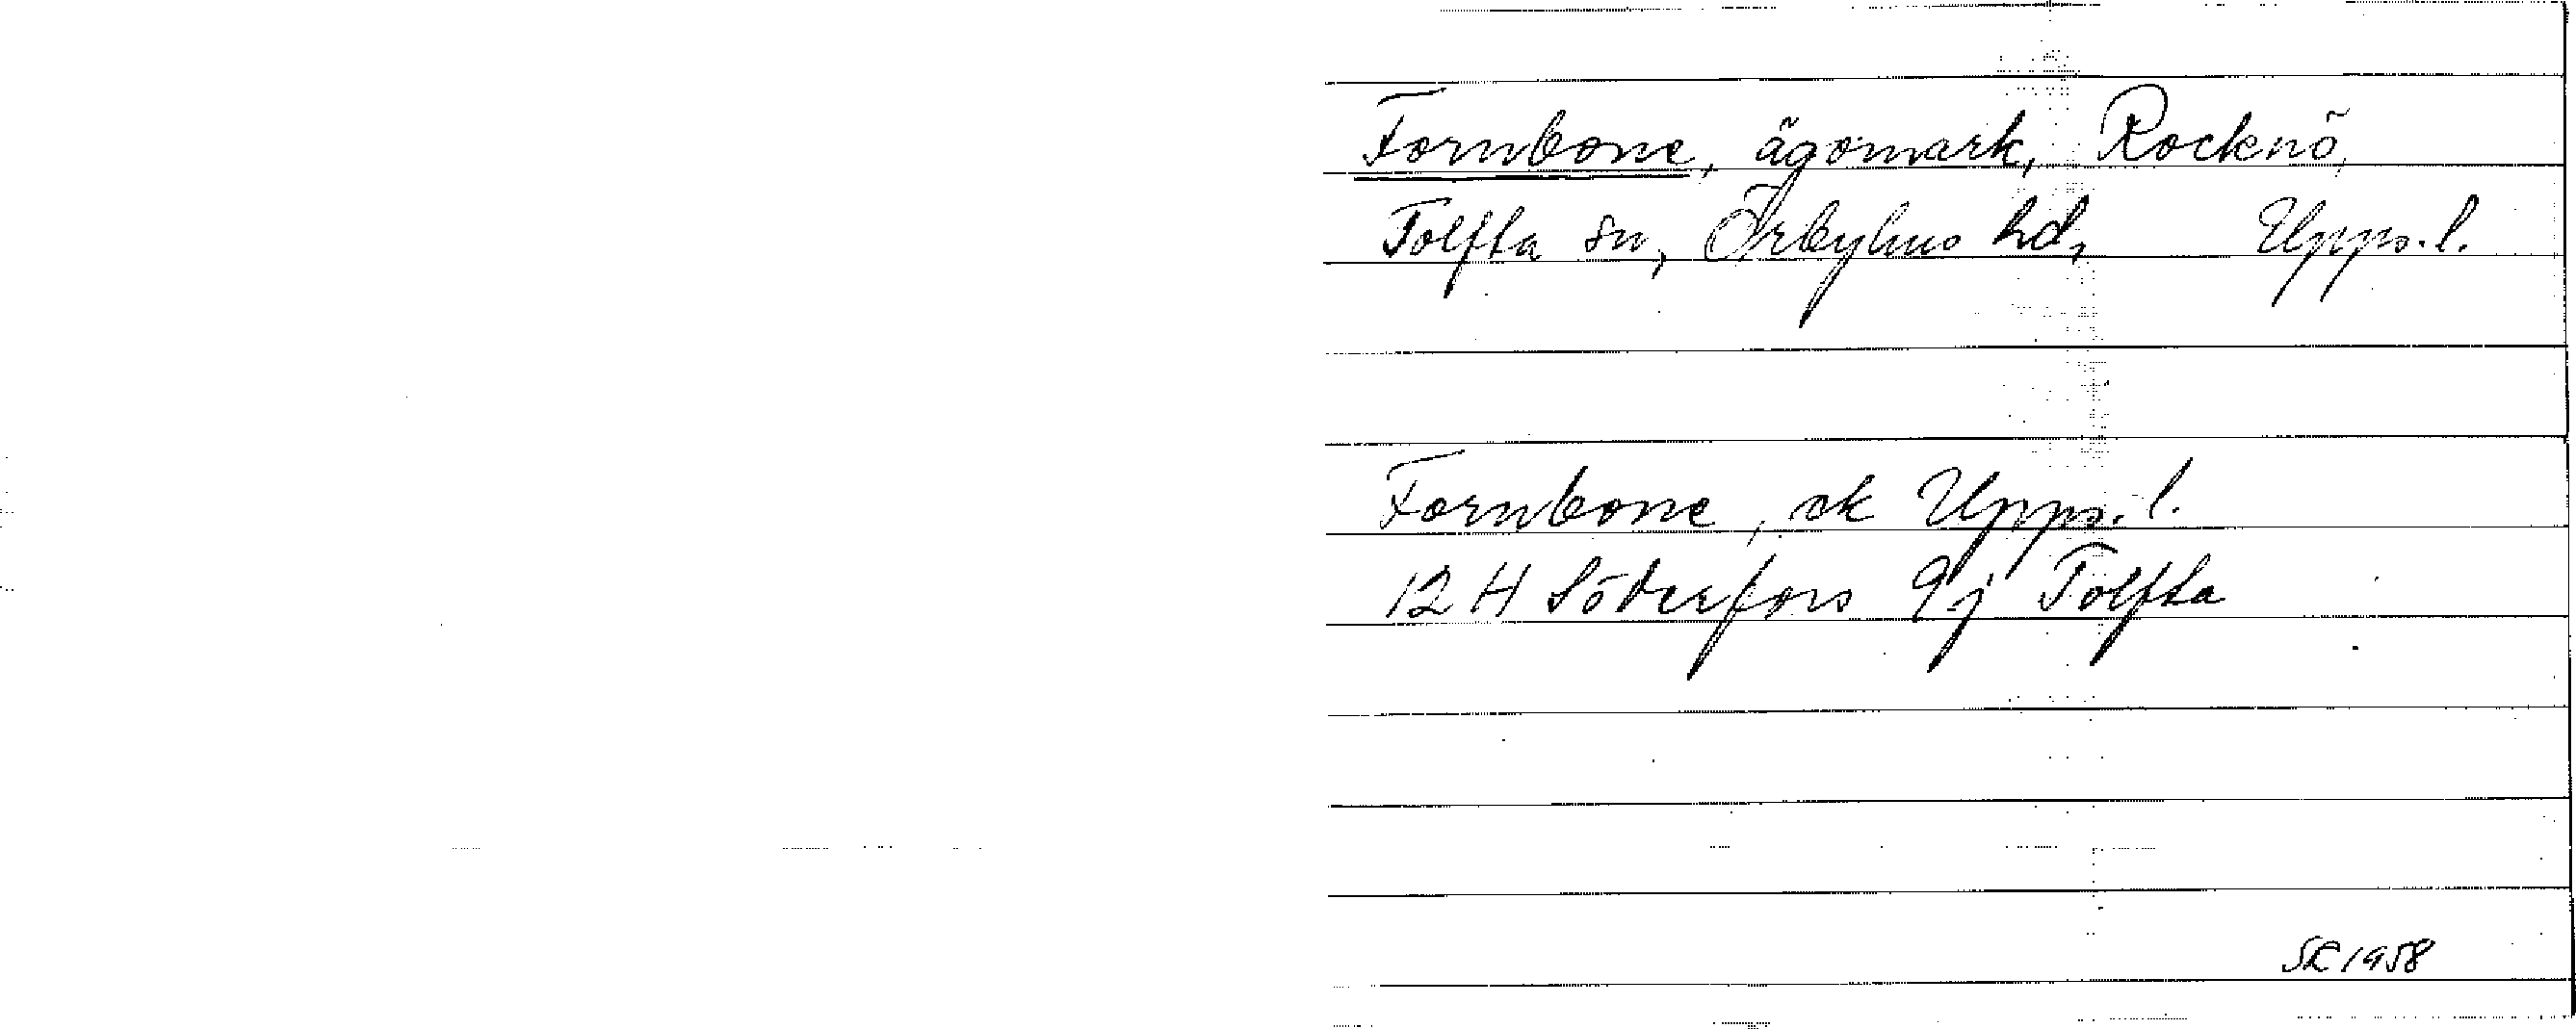 Fornbone, ägomark, Rocknö,
Tolfta sn, Örbyhus hd, Upps. l.
Fornbone, ek Upps. l.
12 H Söderfors 9j Tolfta
SR 1958